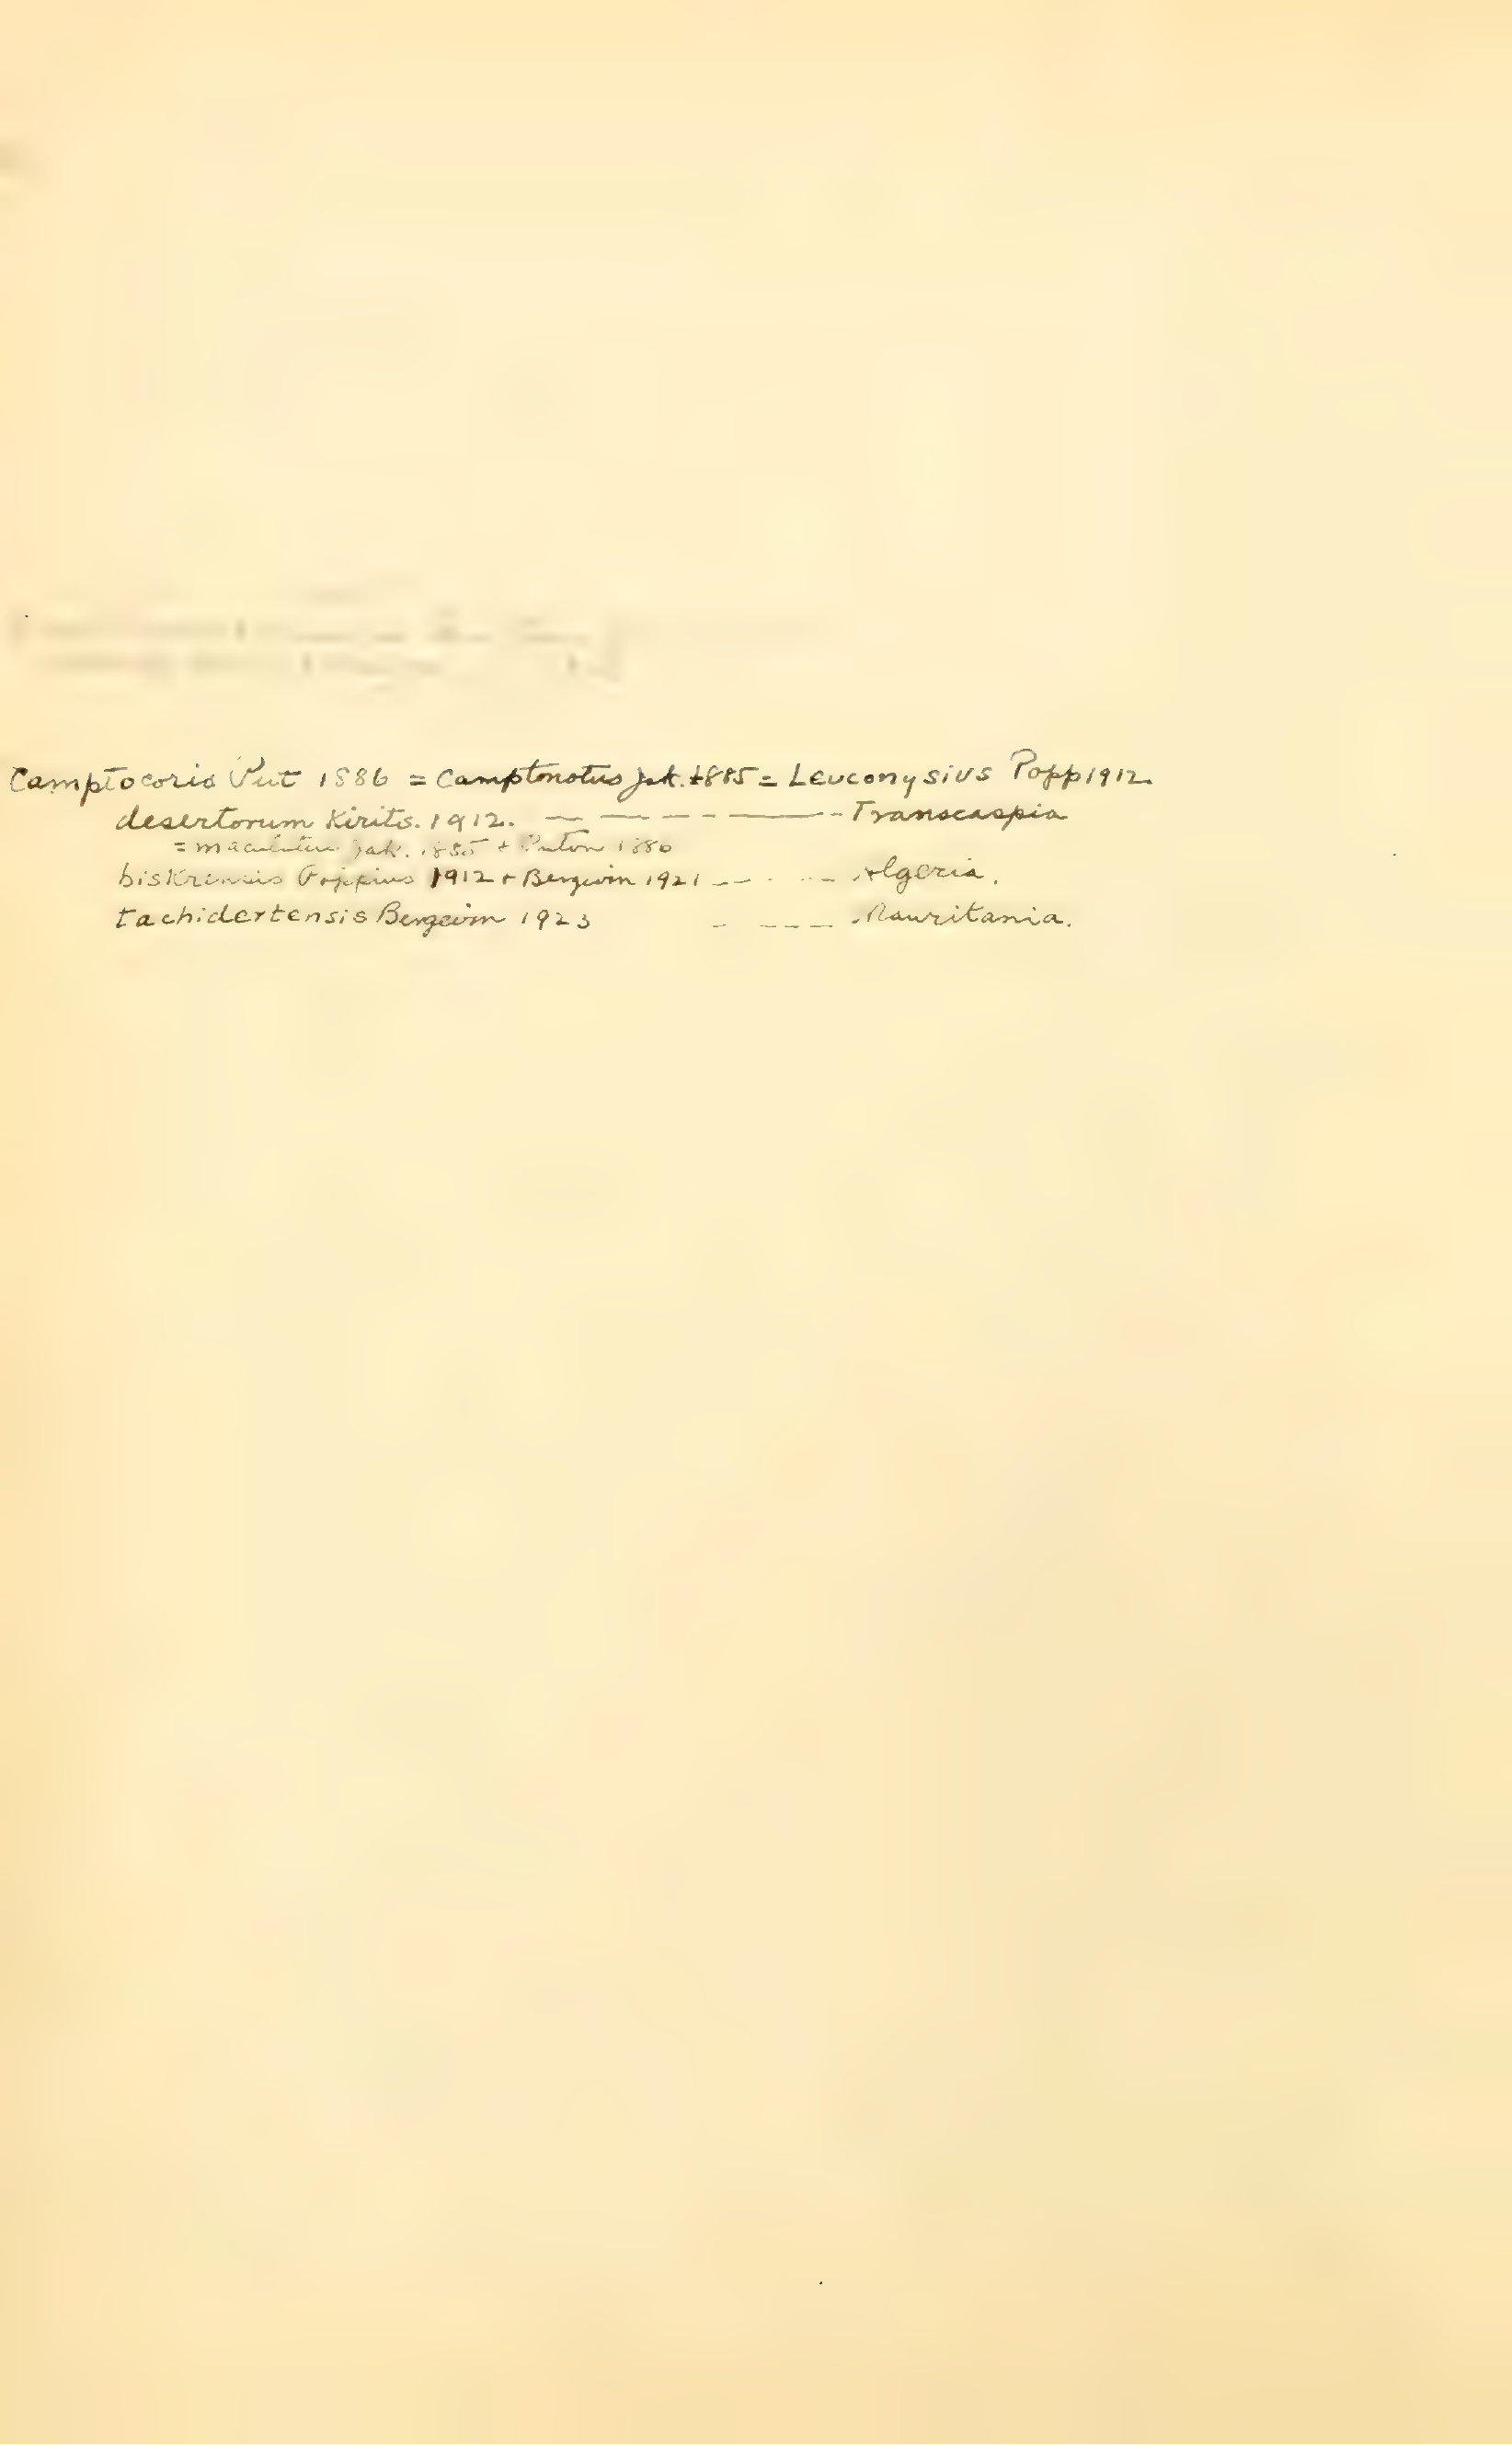 Camptocoris Put 1886 = Camptonotus Jak. 1885 = Leuconysius Popp 1912.
desertorum Kirits. 1912. — — — - —— - Transcaspia
= maculatus Jak. 1885 + Puton 1886
biskrensis Poppius 1912 + Bergevin 1921 — - - — Algeria.
tachidertensis Bergevin 1923 - - - - Mauritania.